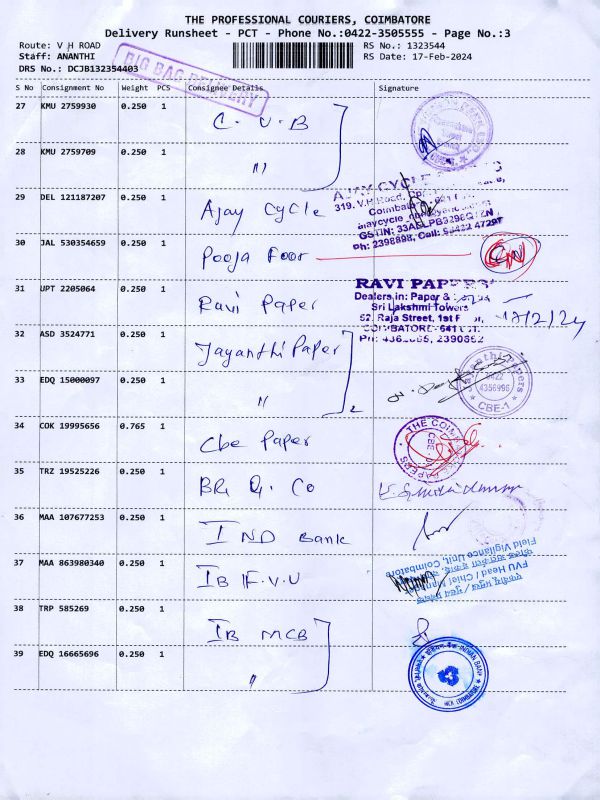 THE PROFESSIONAL COURIERS, COIMBATORE
Delivery Runsheet - PCT - Phone No.:0422-3505555 - Page No.:3
Route: V H ROAD
RS No.: 1323544
Staff: ANANTHI
RS Date: 17-Feb-2024
DRS No.: DCJB132354403
BIG BAG DELIVERY
S No Consignment No Weight PCS Consignee Details Signature
27 KMU 2759930 0.250 1 C. U. B
28 KMU 2759709 0.250 1 "
29 DEL 121187207 0.250 1 Ajay Cycle
AJAY CYCLE
319, V.H Road,
Coimbatore
Ph: 2398898, Cell:
30 JAL 530354659 0.250 1 Pooja Foor
31 UPT 2205064 0.250 1 Ravi Paper
RAVI PAPERS
Dealers in: Paper &
Sri Lakshmi Towers
62, Raja Street, 1st
COIMBATORE - 641
17/2/24
32 ASD 3524771 0.250 1 Jayanthi Paper
33 EDQ 15000097 0.250 1 " 2
Jayanthi Papers
0422
4356996
CBE-1
34 COK 19995656 0.765 1 Cbe Paper
THE COIM
PAPERS
35 TRZ 19525226 0.250 1
36 MAA 107677253 0.250 1 IND Bank
37 MAA 863980340 0.250 1 IB F.V.U
Field Vigilance Unit, Coimbatore
FVU Head / Chief Manager
38 TRP 585269 0.250 1 IB MCB
39 EDQ 16665696 0.250 1 "
INDIAN BANK